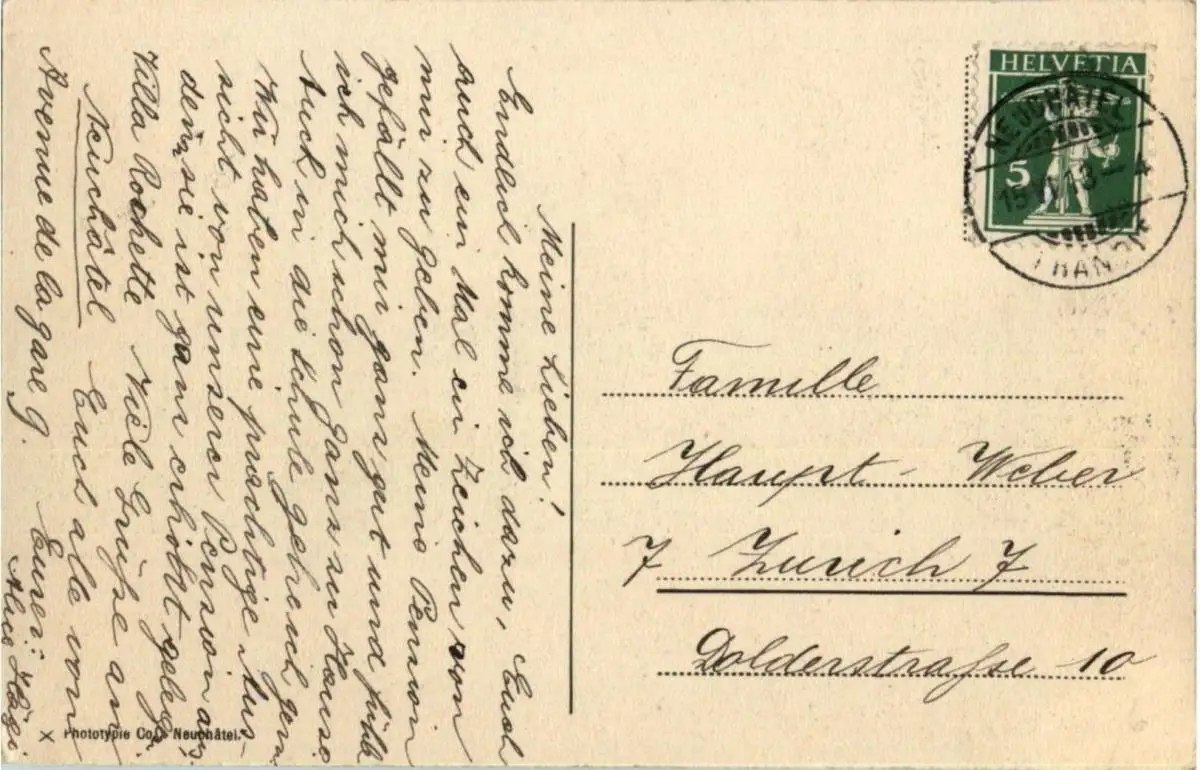 Meine Lieben!
Endlich komme ich dazu, Euch
auch ein Mal ein Zeichen von
mir zu geben. Meine Pension
gefällt mir ganz gut und fühle
ich mich schon ganz zu Hause
Auch in die Schule geh ich gern
Wir haben eine prächtige Aus-
sicht von unserer Pension aus
denn sie ist ganz erhöht gelegen
Villa Rochette Viele Grüsse an
Neuchâtel Euch alle von
Avenue de la gare 9. Eurer
Alice Hägi
X Phototypie Co., Neuchâtel.
HELVETIA
5
NEUCHÂTEL
15. VI. 13 – 4
Famille
Haupt-Weber
7 Zurich 7
Dolderstraße 10